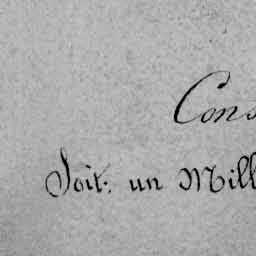 Cons
Soit: un Mill